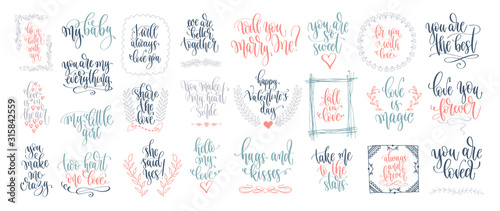 my baby
I will
always
love you
we are
better
together
will you
marry me!
you are
so
sweet
for you
with love
you are
the best
you are my
everything
share
the
love
you make
my heart
smile
happy
Valentine's
day
fall
in
love
love
is
magic
love you
forever
my little
girl
you
make me
crazy
two heart
one love
she
said
yes!
hello
my
love
hugs and
kisses
take me
to the
stars
always
and
forever
you are
loved
#315842559